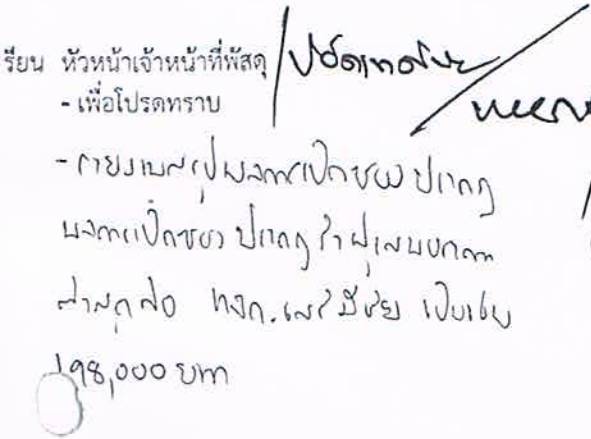 รียน หัวหน้าเจ้าหน้าที่พัสดุ/ปลัดเทศบาล/
- เพื่อโปรดทราบ
- รายงานสรุปผลการเปิดซอง ปรากฏ
ผลการเปิดซอง ปรากฏว่าผู้เสนอราคา
ต่ำสุดคือ หจก. เป็นเงิน
198,000 บาท